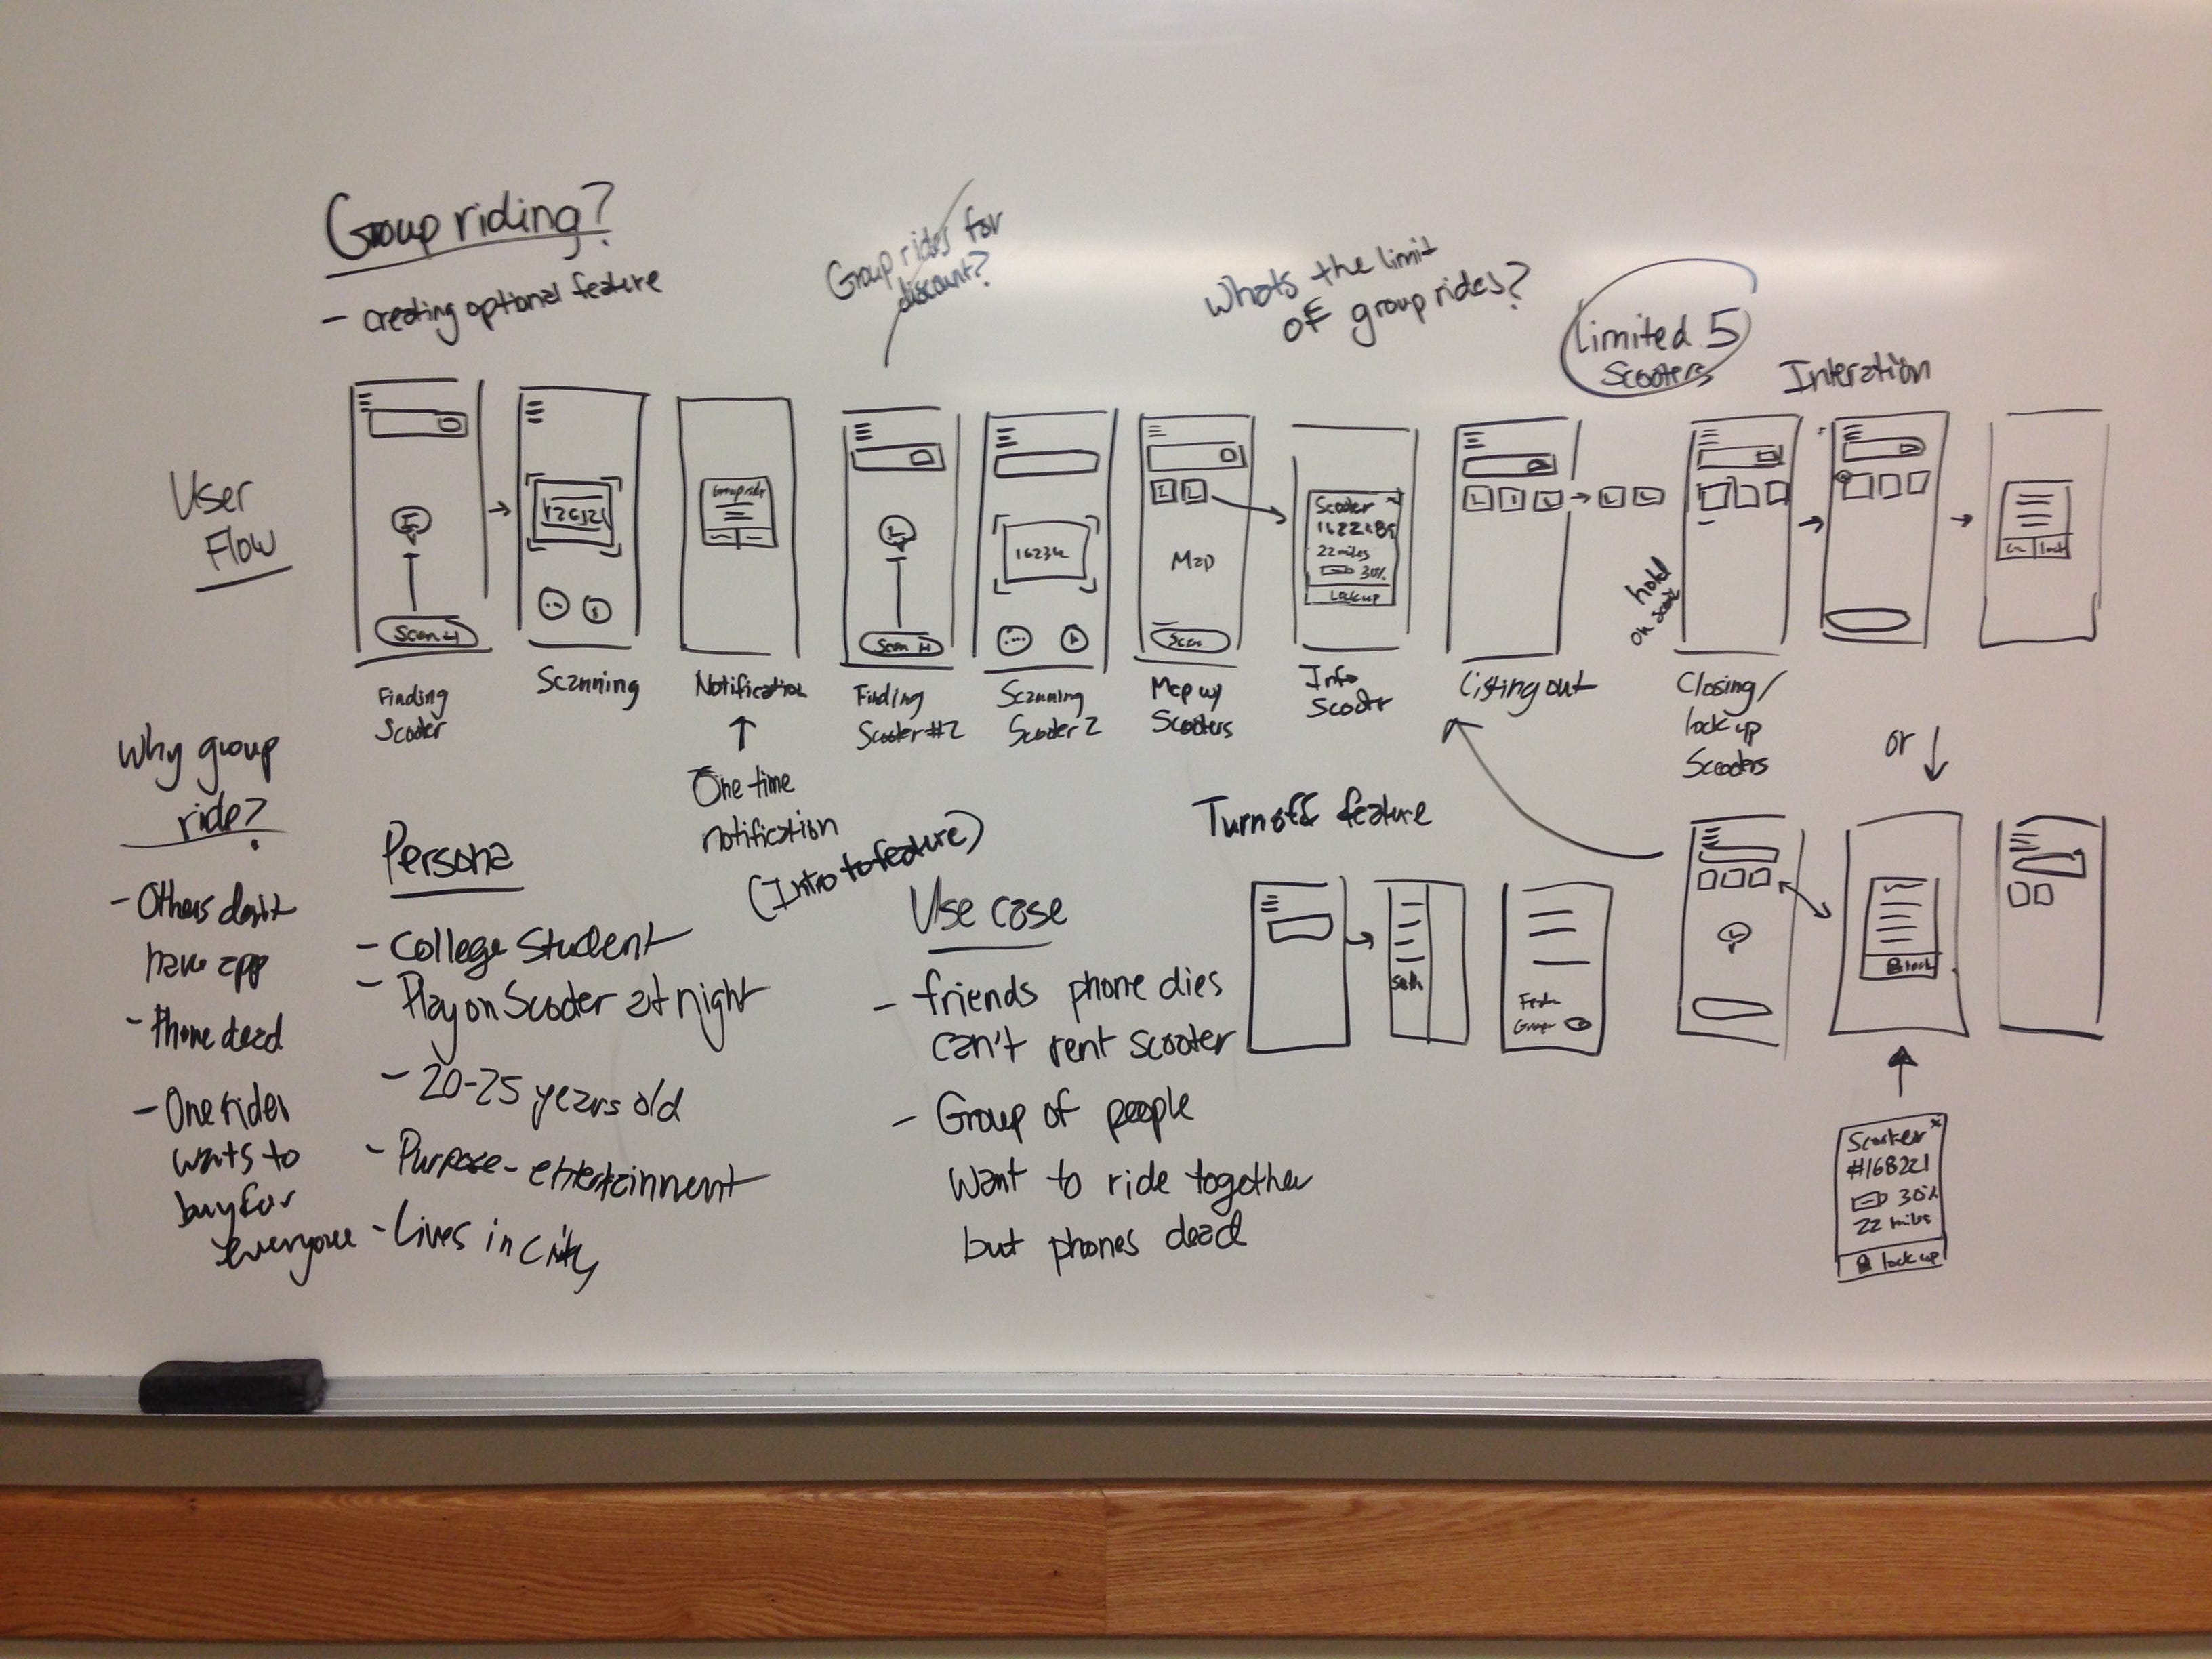 Group riding?
- creating optional feature
Group rides for
discount?
Whats the limit
of group rides?
Limited 5
Scooters
Interation
User
Flow
Scan
Finding
Scooter
Scanning
Group ride
Notification
One time
notification
(Intro to feature)
Scan
Finding
Scooter #2
1623
Scanning
Scooter 2
Map
Scan
Map w/
Scooters
Scooter x
22 miles
30%
Lock up
Info
Scooter
Listing out
hold
on
Closing/
lock up
Scooters
lock
or
Why group
ride?
- Others don't
have app
- Phone dead
- One rider
wants to
buy for
everyone
Persona
- College Student
- Play on Scooter at night
- 20-25 years old
- Purpose - entertainment
- Lives in city
Use case
- friends phone dies
can't rent scooter
- Group of people
want to ride together
but phones dead
Turn off feature
Group
lock
Scooter x
#168221
30%
22 miles
lock up